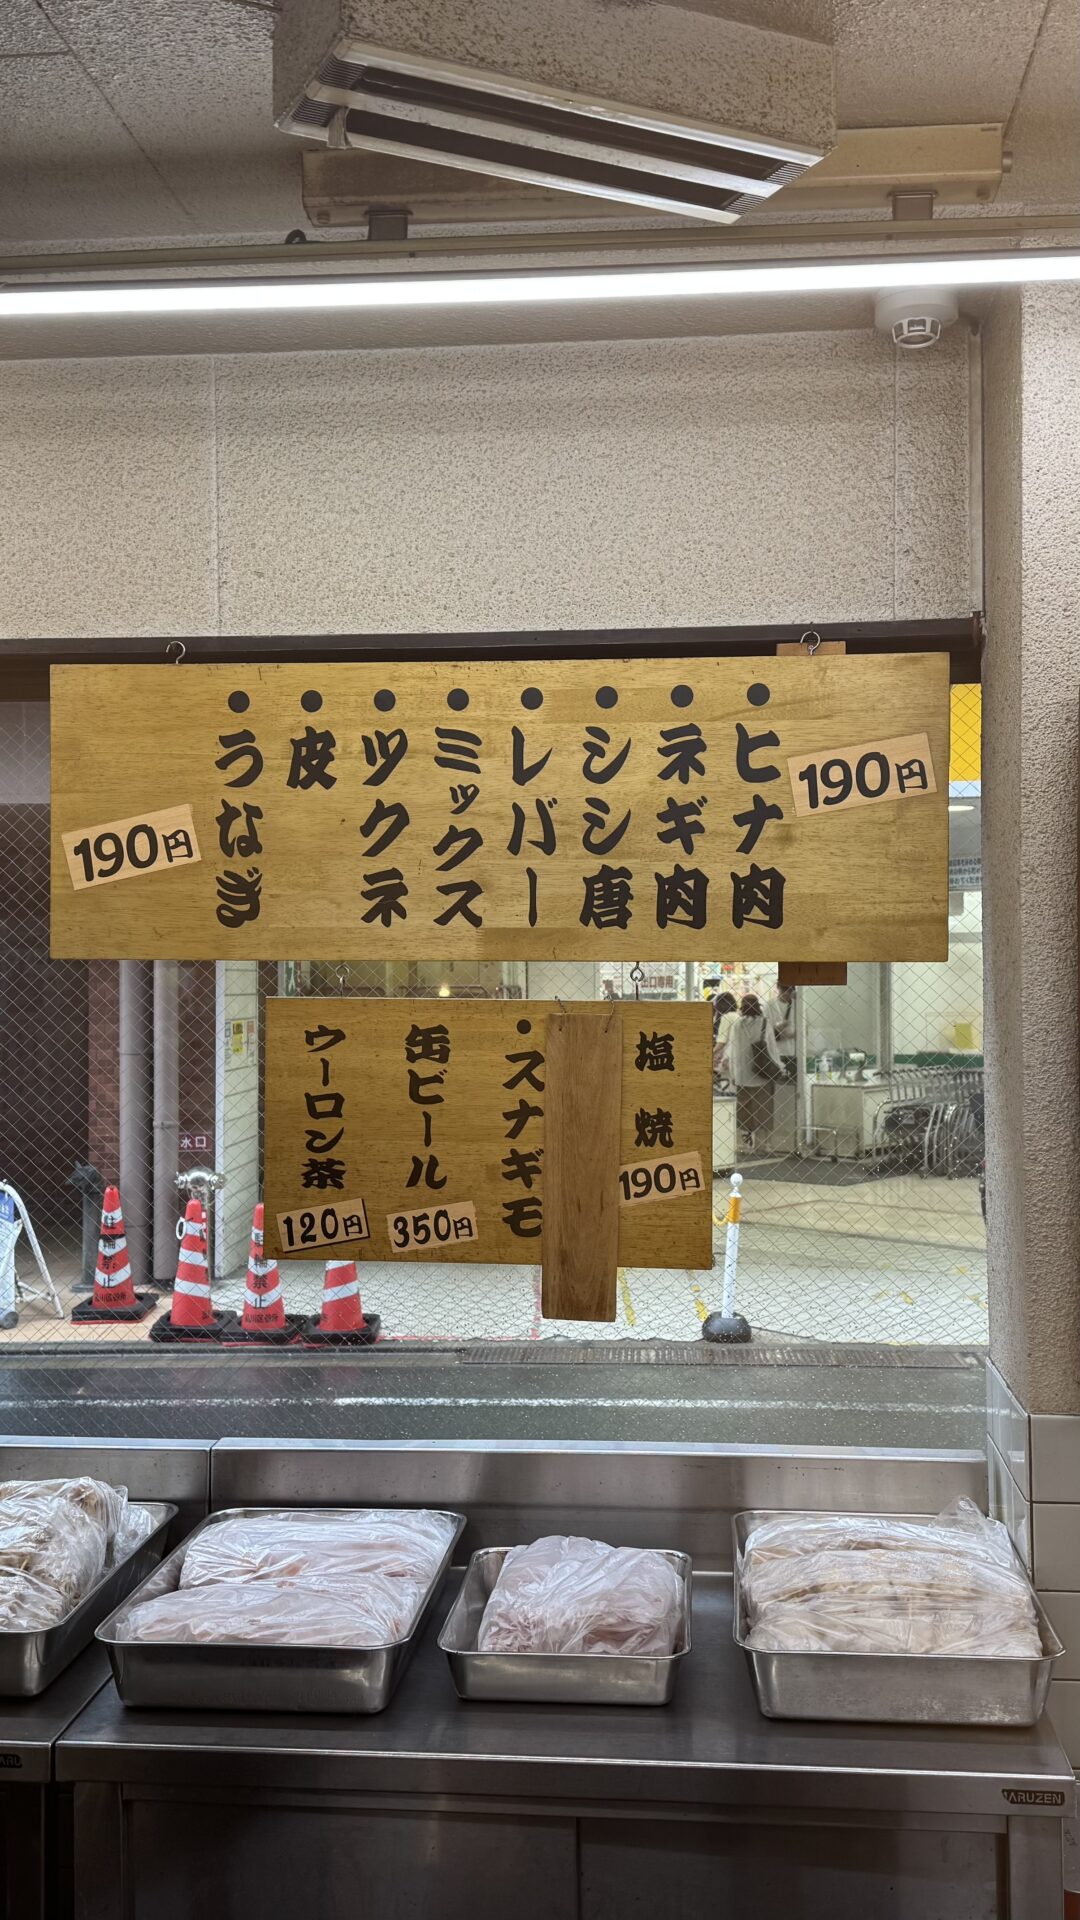 190円
ヒナ肉
ネギ肉
シシ唐
レバー
ミックス
ツクネ
皮
うなぎ
190円
塩焼
190円
スナギモ
缶ビール
350円
ウーロン茶
120円
出口専用
水口
駐輪禁止
駐輪禁止
ARUZEN
ARU